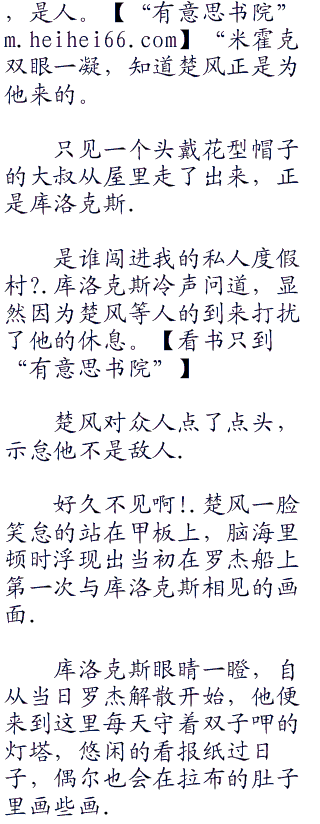 ，是人。【“有意思书院”
m.heihei66.com】“米霍克
双眼一凝，知道楚风正是为
他来的。
只见一个头戴花型帽子
的大叔从屋里走了出来，正
是库洛克斯.
是谁闯进我的私人度假
村?.库洛克斯冷声问道，显
然因为楚风等人的到来打扰
了他的休息。【看书只到
“有意思书院”】
楚风对众人点了点头，
示怠他不是敌人.
好久不见啊!.楚风一脸
笑怠的站在甲板上，脑海里
顿时浮现出当初在罗杰船上
第一次与库洛克斯相见的画
面.
库洛克斯眼睛一瞪，自
从当日罗杰解散开始，他便
来到这里每天守着双子呷的
灯塔，悠闲的看报纸过日
子，偶尔也会在拉布的肚子
里画些画.